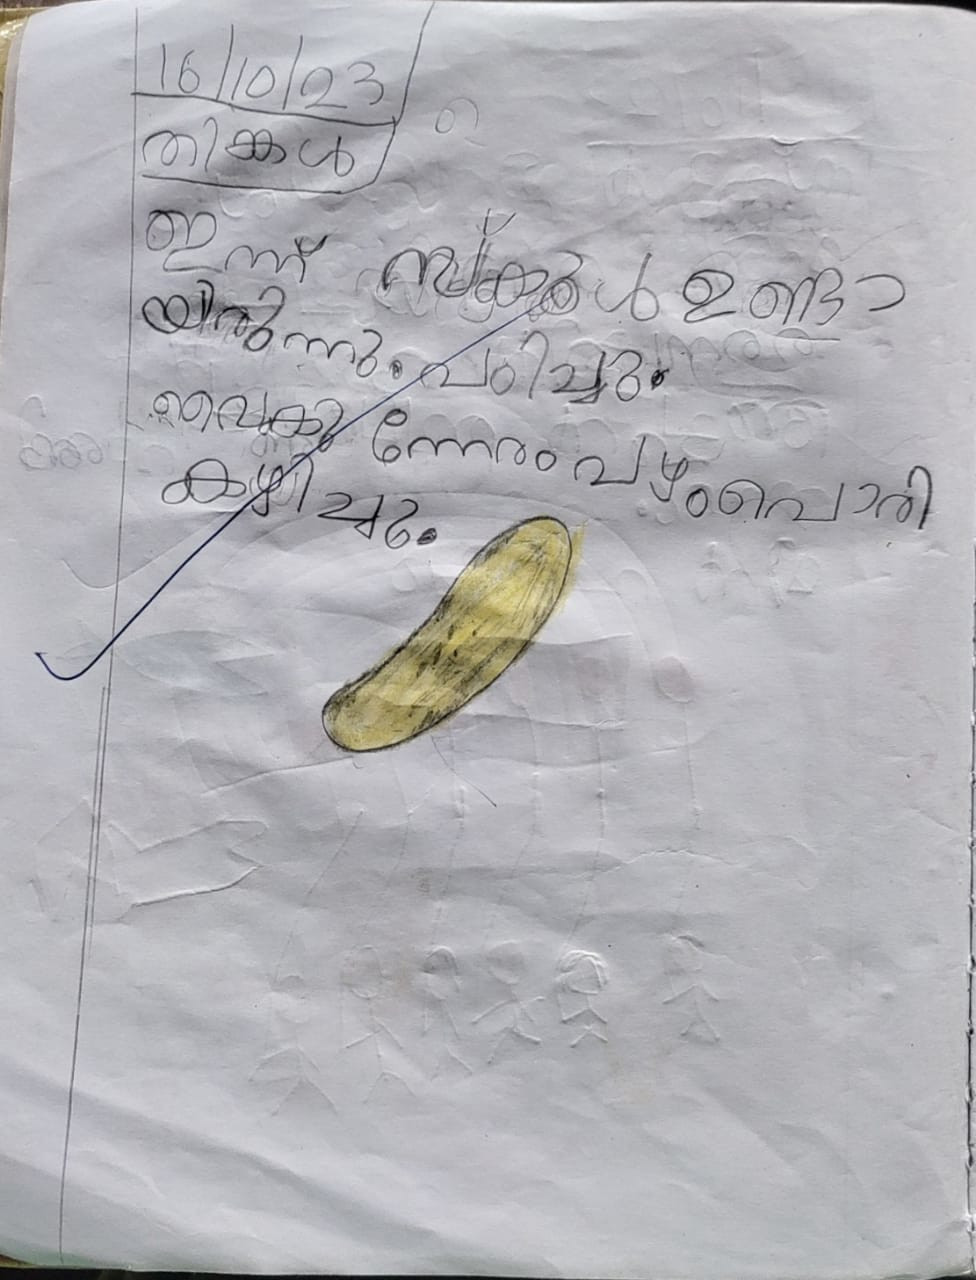 16/10/23
തിങ്കൾ
ഇന്ന് സ്കൂൾ ഉണ്ടാ
യിരുന്നു. പഠിച്ചു.
വൈകു ന്നേരം പഴംപൊരി
കഴിച്ചു.